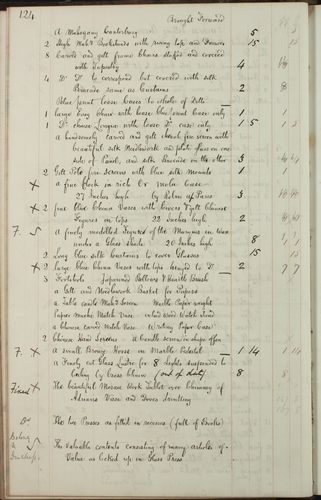 124
Brought Forward
A Mahogany Canterbury 5
2 High Mahy Bookstands with rising tops and Drawers 15
8 Carved and gilt frame Chairs stuffed and covered
with Tapestry 4
4 Do Do to correspond but covered with silk
Brocade same as Curtains 2 8
Blue print loose Cases to whole of Ditto
1 large Easy Chair with loose blue print Case only 1 1
1 Do Chaise Longue with loose Do case only 1 5
A handsomely carved and gilt cheval fire screen with
beautiful silk Needlework and plate glass on one
side of Panel, and silk Brocade on the other 3
2 Gilt Pole fire screens with blue silk mounts 1 1
x A fine Clock in rich Or molu case
27 Inches high by Rolin of Paris 3
x 2 fine blue China Vases with
Figures on tops 22 Inches high 2
7. S A finely modelled Figure of the Marquis in wax
under a Glass shade 20 Inches high 8
2 long Blue silk Curtains to cover Glasses 15
x 2 Large blue China Vases with tops 2
3 Footstools Japanned Bellows & Hearth Brush
a Gilt and Needlework Basket for Papers
a Table Candle Shade Screen Marble Paper weight
Papier mache Match Vase inlaid Wood Watch Stand
a Chinese carved Match Vase Writing Paper Case
2 Chinese Hand Screens A Candle screen
7. x A small Bronze Horse on Marble Pedestal 1 14
A Finely cut Glass Lustre for 8 lights suspended to
Ceiling by brass Chain (out of duty) 8
Fixture x The beautiful Mosaic Work Tablet over Chimney of
Vase and Doves drinking
Do The two Presses as fitted in recesses (full of Books)
Belong
to
Duchess The valuable contents consisting of many articles of
Value as locked up in Glass Press